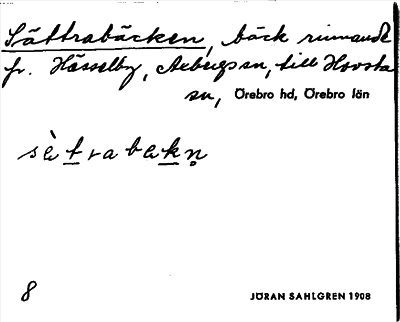 Sättrabäcken, bäck rinnande
fr. Hässelby, Axbergs sn, till Hovsta
sn, Örebro hd, Örebro län
sὰtrabakn̥
8
JÖRAN SAHLGREN 1908